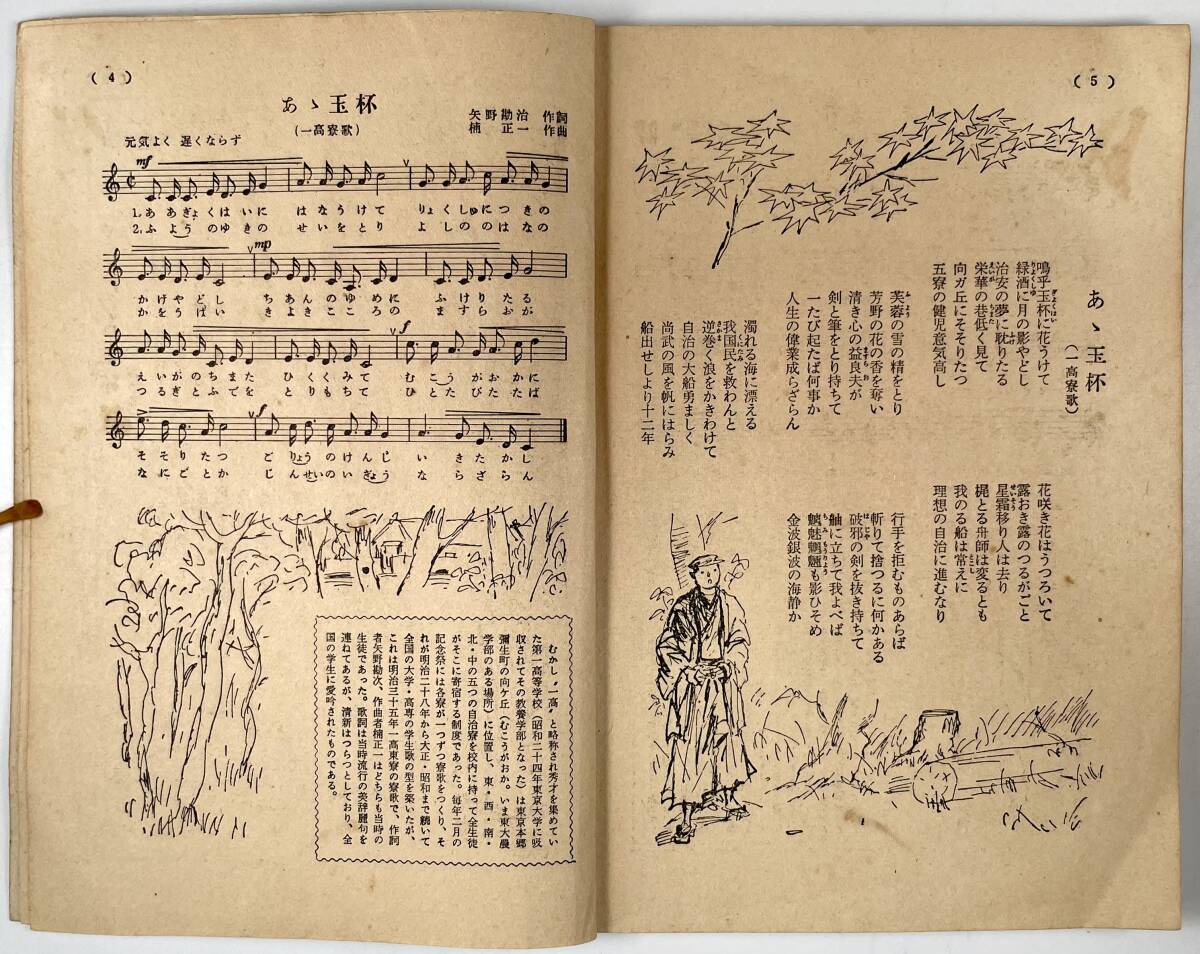 ( 4 )
あゝ玉杯
(一高寮歌)
矢野勘治 作詞
楠正一 作曲
元気よく 遅くならず
mf
1.ああぎょくはいに はなうけて りょくしゅにつきの
2.ふようのゆきの せいをとり よしののはなの
mp
かげやどし ちあんのゆめに ふけりたる
かをうばい きよきこころの ますらおが
f
えいがのちまた ひくくみて むこうがおかに
つるぎとふでを とりもちて ひとたびたたば
f
そそりたつ ごりょうのけんじ いきたかし
なにごとか じんせいのいぎょう ならざらん
むかし〝一高〟と略称され秀才を集めてい
た第一高等学校(昭和二十四年東京大学に吸
収されてその教養学部となった)は東京本郷
彌生町の向ケ丘(むこうがおか。いま東大農
学部のある場所)に位置し、東・西・南・
北・中の五つの自治寮を校内に持って全生徒
がそこに寄宿する制度であった。毎年二月の
記念祭には各寮が一つずつ寮歌をつくり、そ
れが明治二十八年から大正・昭和まで続いて
全国の大学・高専の学生歌の型を築いたが、
これは明治三十五年一高東寮の寮歌で、作詞
者矢野勘次、作曲者楠正一はどちらも当時の
生徒であった。歌詞は当時流行の美辞麗句を
連ねてあるが、清新はつらつとしており、全
国の学生に愛吟されたものである。
( 5 )
あゝ玉杯
(一高寮歌)
嗚乎玉杯に花うけて
緑酒に月の影やどし
治安の夢に耽りたる
栄華の巷低く見て
向ガ丘にそそりたつ
五寮の健児意気高し
芙蓉の雪の精をとり
芳野の花の香を奪い
清き心の益良夫が
剣と筆をとり持ちて
一たび起たば何事か
人生の偉業成らざらん
濁れる海に漂える
我国民を救わんと
逆巻く浪をかきわけて
自治の大船勇ましく
尚武の風を帆にはらみ
船出せしより十二年
花咲き花はうつろいて
露おき露のつるがごと
星霜移り人は去り
梶とる舟師は変るとも
我のる船は常えに
理想の自治に進むなり
行手を拒むものあらば
斬りて捨つるに何かある
破邪の剣を抜き持ちて
舳に立ちて我よべば
魑魅魍魎も影ひそめ
金波銀波の海静か